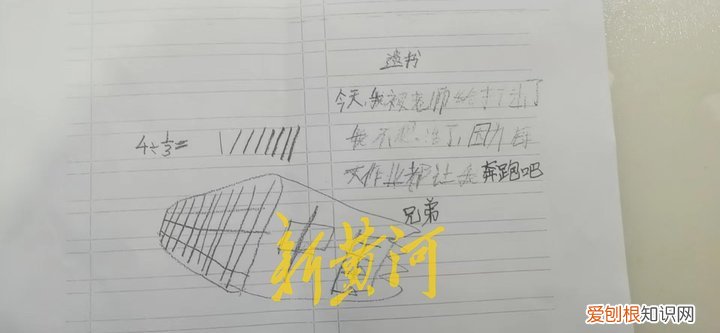 遗书
今天,我被老师给了
4÷1/3=
我不想活了,因为每
次作业都让我奔跑吧
兄弟
新黄河
爱刨根知识网